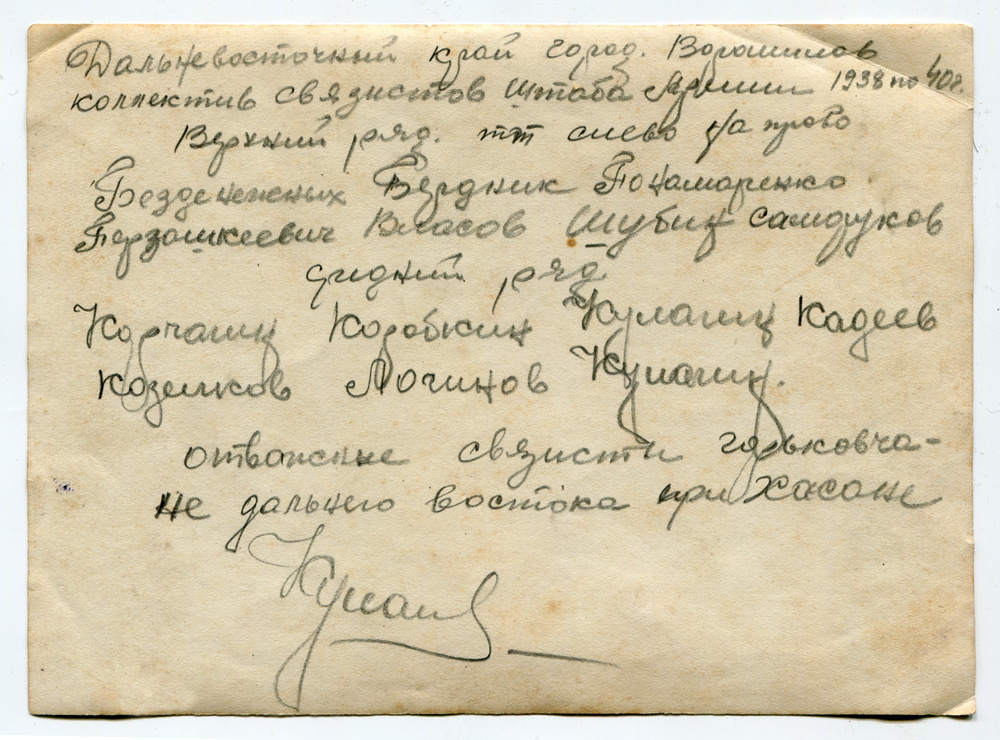 Дальневосточный край город. Ворошилов
коллектив связистов Штаба Армии 1938 по 40 г.
Верхний ряд. тт слево на право
Безденежных Бердник Понамаренко
Герзашкеевич Власов Шубин Самодуков
ряд
Корчагин Коробкин Кулагин Кадеев
Козелков Логинов Кулагин.
отважные связисты горьковча-
не дальнего востока при Хасане